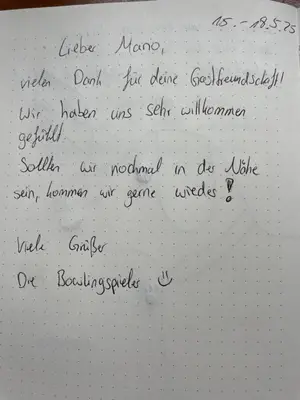 15. - 18.5.25
Lieber Mano,
vielen Dank für deine Gastfreundschaft!
Wir haben uns sehr willkommen
gefühlt.
Sollten wir nochmal in der Nähe
sein, kommen wir gerne wieder!
Viele Grüße
Die Bowlingspieler ☺